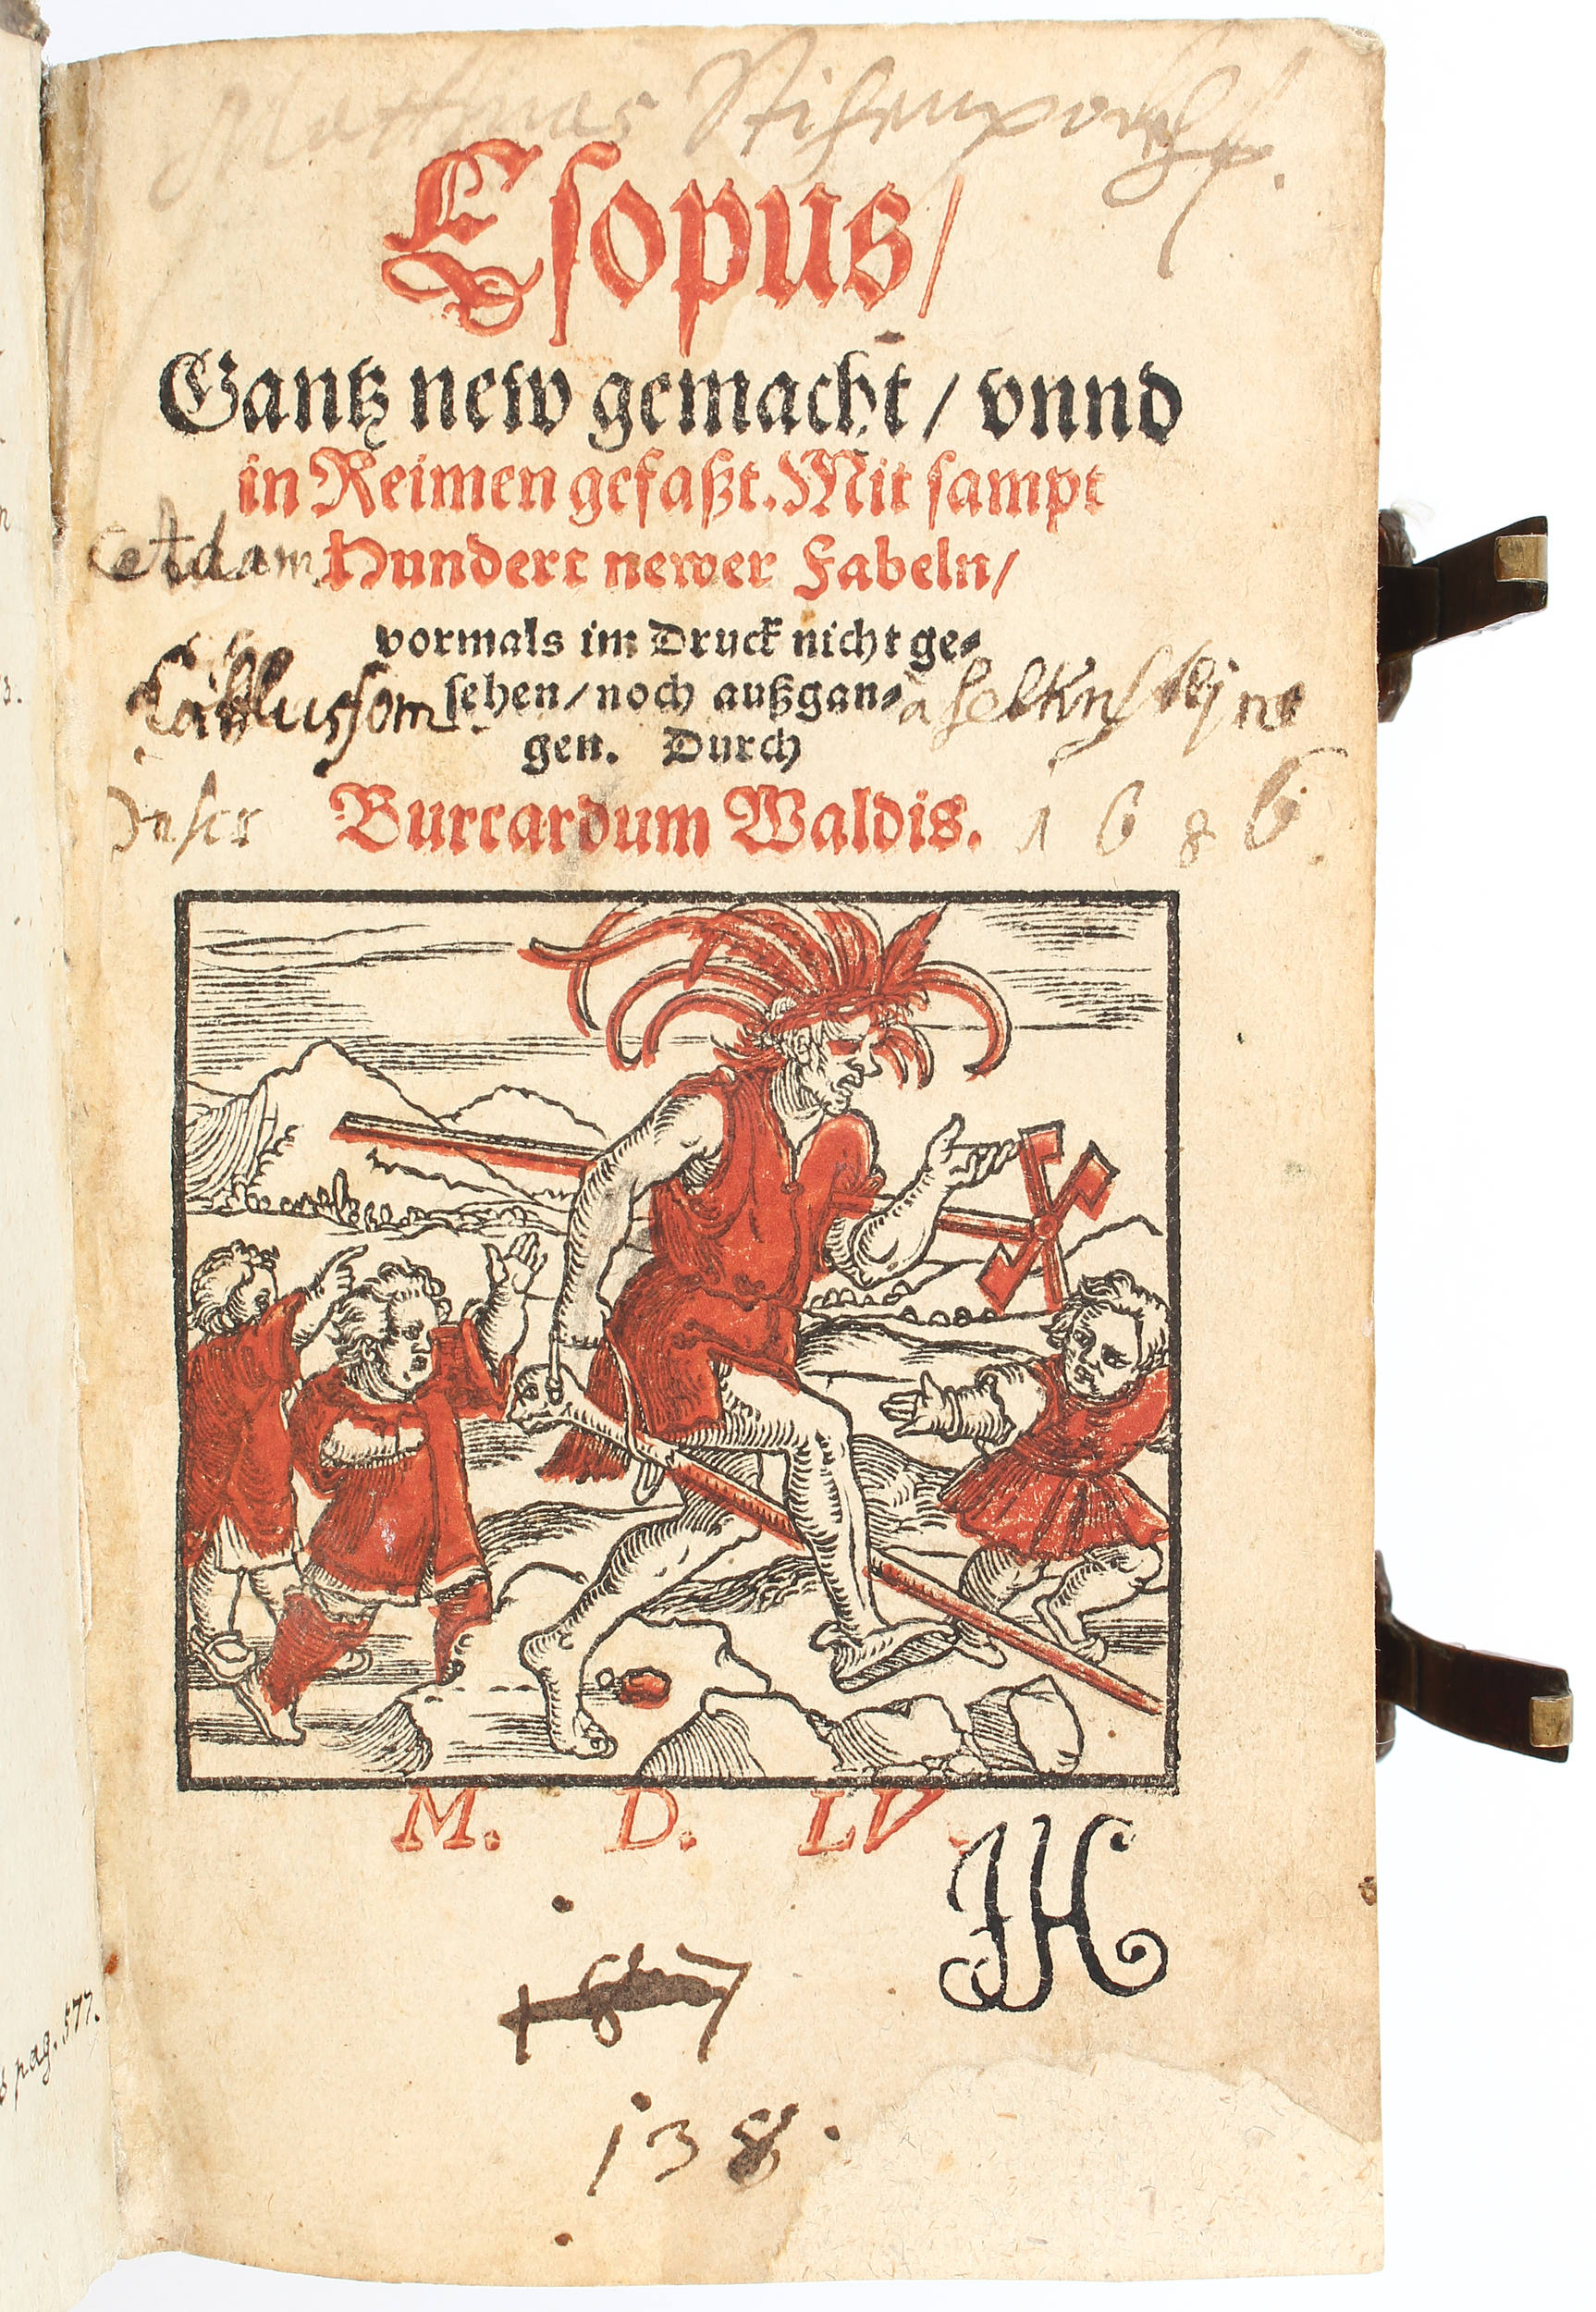 Matthias
Esopus/
Gantz new gemacht / vnnd
in Reimen gefaßt. Mit sampt
Adam Hundert newer Fabeln/
vormals im Druck nicht ge⸗
sehen/ noch außgan⸗
gen. Durch
Burcardum Waldis. 1686
M. D. LV
JH
138.
pag. 577.